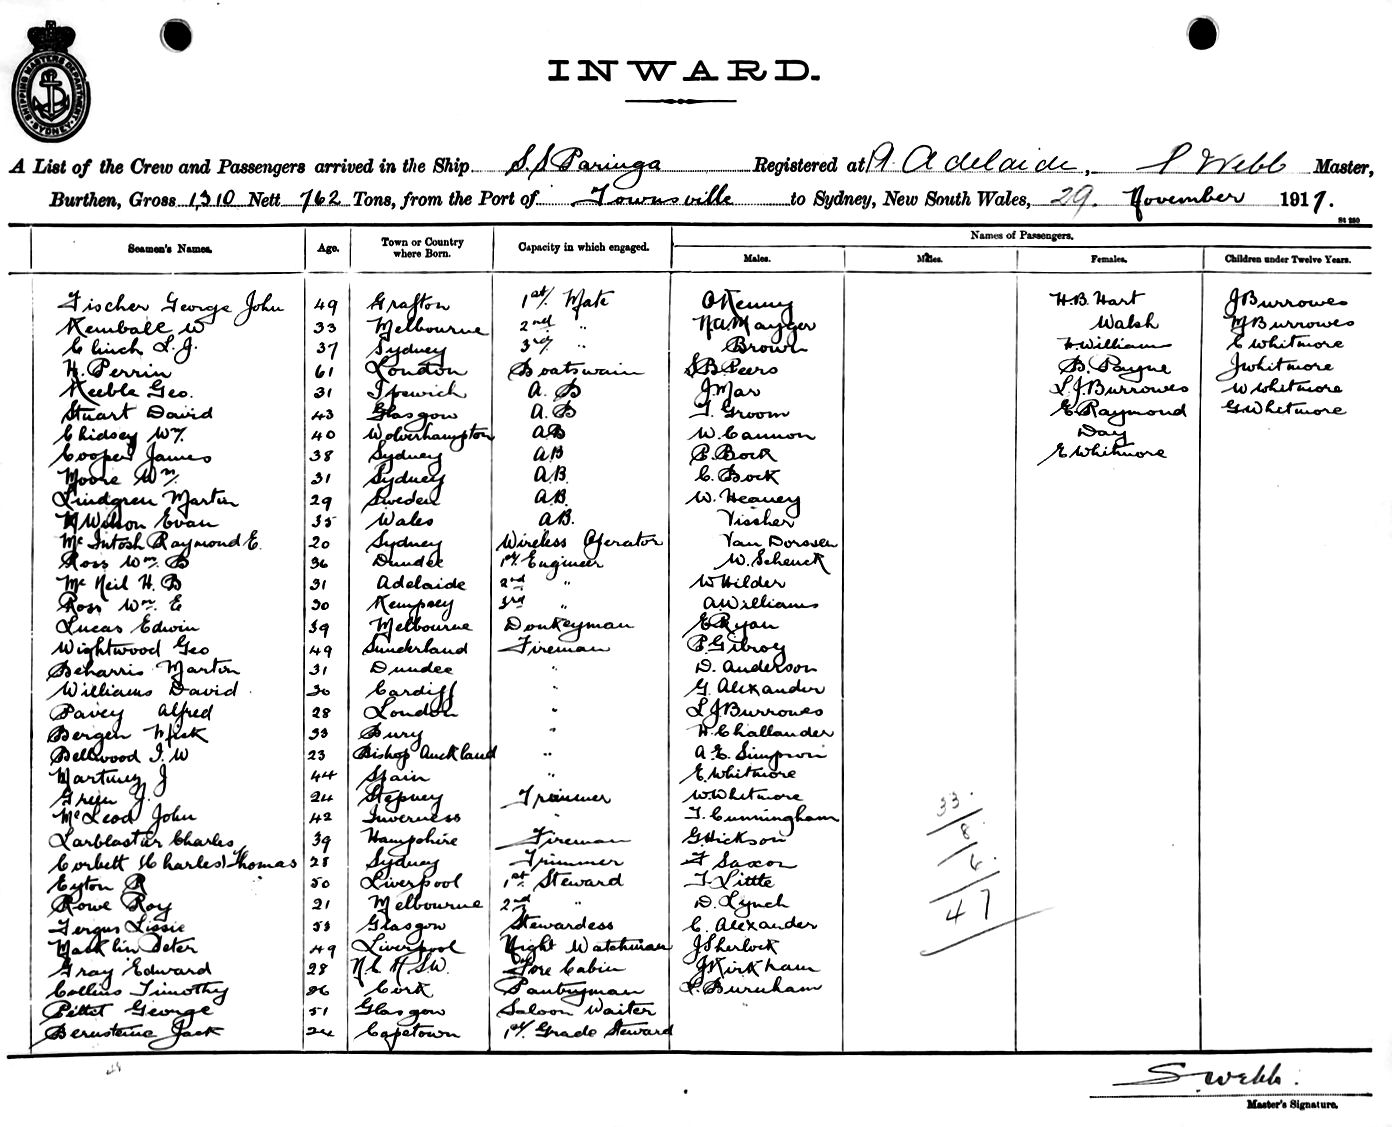 SHIPPING MASTERS DEPARTMENT SYDNEY
INWARD.
A List of the Crew and Passengers arrived in the Ship S.S Paringa Registered at Adelaide, S Webb Master,
Burthen, Gross 1310 Nett 762 Tons, from the Port of Townsville to Sydney, New South Wales, 29. November 1917.
Seamen's Names. Age. Town or Country where Born. Capacity in which engaged. Names of Passengers.
Males. Males. Females. Children under Twelve Years.
Fischer George John 49 Grafton 1st Mate O Kenny H.B. Hart J Burrowes
Kemball W 33 Melbourne 2nd " Mayger Walsh M Burrowes
Clinch L. J. 37 Sydney 3rd " Brown H. William E Whitmore
H. Perrin 61 London Boatswain S B Peers B. Payne J Whitmore
Keeble Geo. 31 Ipswich A. B J Mar L. J. Burrowes W Whitmore
Stuart David 43 Glasgow A. B T. Groom E Raymond G Whitmore
Chidsey Wm. 40 Wolverhampton AB W. Cannon Day
Cooper James 38 Sydney AB P. Bock E Whitmore
Moore Wm. 31 Sydney A.B. C. Bock
Lindgren Martin 29 Sweden A.B. W. Heaney
Evan 35 Wales A.B. Visscher
Mc Intosh Raymond E. 20 Sydney Wireless Operator Van Dorssen
Ross Wm. B 36 Dundee 1st Engineer W. Schenck
Mc Neil H. B 31 Adelaide 2nd " W Hilder
Ross Wm. E 30 Kempsey 3rd " A. Williams
Lucas Edwin 39 Melbourne Donkeyman E Ryan
Wightwood Geo 49 Sunderland Fireman P. Gilroy
Beharris Martin 31 Dundee " D. Anderson
Williams David 30 Cardiff " G. Alexander
Pavey Alfred 28 London " L J Burrowes
Bergen Mick 33 Bury " H. Challander
Bellwood J. W 23 Bishop Auckland " A. E. Simpson
Martinez J 44 Spain " E. Whitmore
Green J. 24 Stepney Trimmer W. Whitmore
McLeod John 42 Inverness " T. Cunningham
Larblastur Charles 39 Hampshire Fireman G. Hickson
Corbett (Charles) Thomas 28 Sydney Trimmer F Saxon
Eyton R 50 Liverpool 1st Steward T. Little
Rowe Roy 21 Melbourne 2nd " D. Lynch
Fergus Lissie 53 Glasgow Stewardess C. Alexander
Macklin Peter 49 Liverpool Night Watchman J Sherlock
Gray Edward 28 N.S.W. Fore Cabin J Kirkham
Collins Timothy 26 Cork Pantryman L. Burnham
Pittet George 51 Glasgow Saloon Waiter
Bernsteine Jack 24 Capetown 1st Grade Steward
33.
8.
6.
47
S. Webb.
Master's Signature.